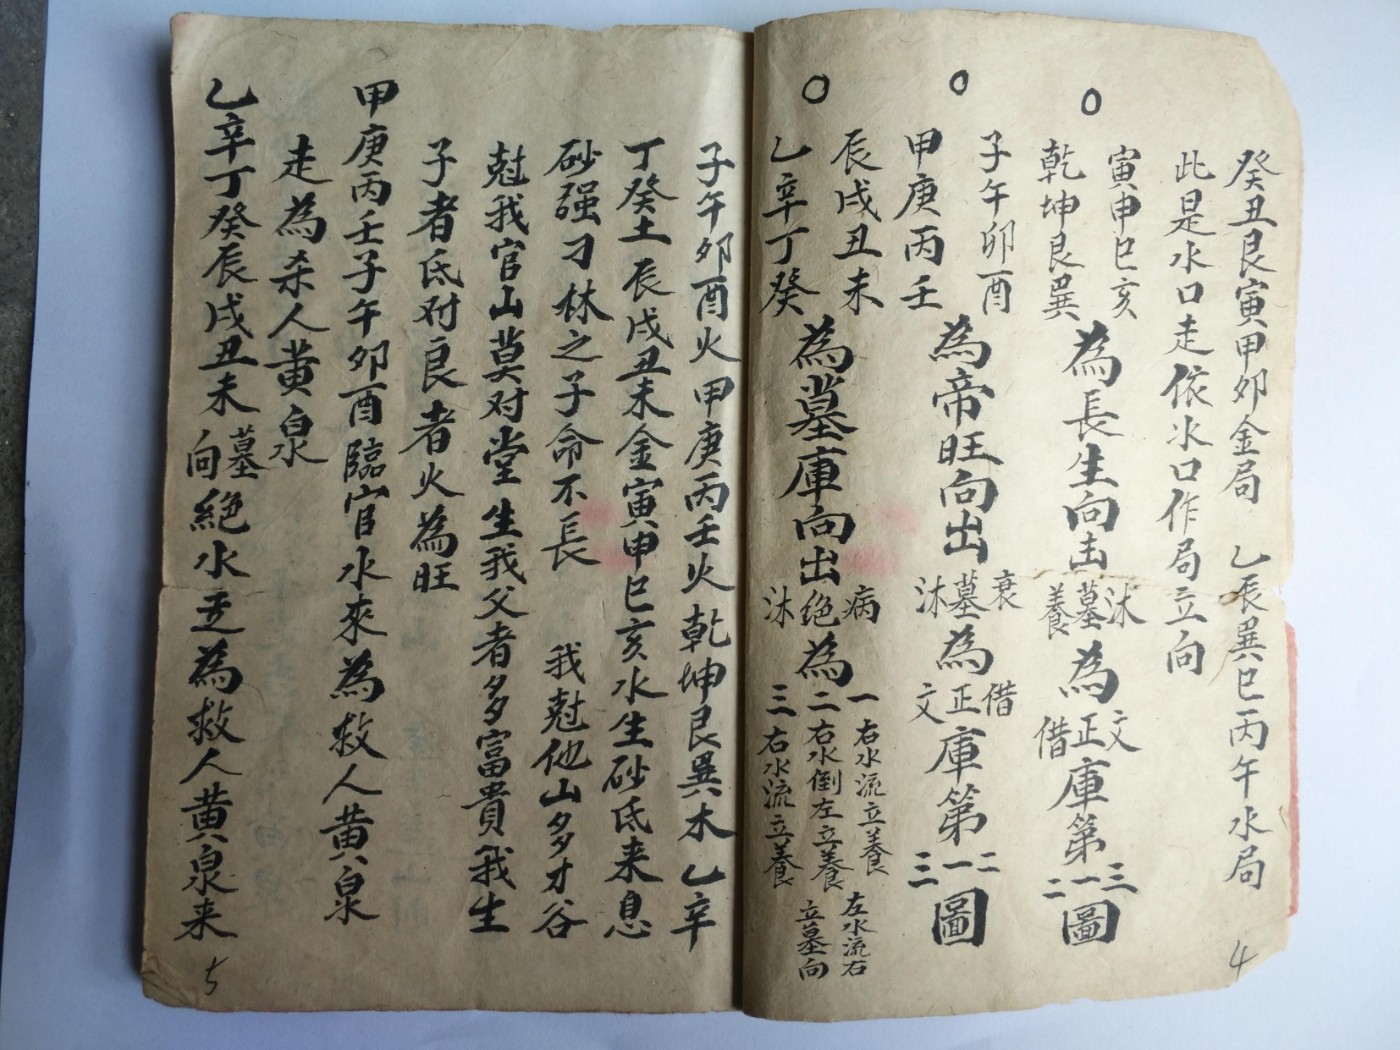 癸丑艮寅甲卯金局 乙辰巽巳丙午水局
此是水口走依水口作局立向
寅申巳亥
乾坤艮巽
為長生向出
沐
墓
養
為
文
正
借
庫第
三
一
二
圖
子午卯酉
甲庚丙壬
為帝旺向出
衰
墓
沐
為
借
正
文
庫第
二
一
三
圖
辰戌丑未
乙辛丁癸
為墓庫向出
病
绝
沐
為
一右水流立養
二右水倒左立養
三右水流立養
左水流右
立墓向
4
子午卯酉火甲庚丙壬火乾坤艮巽木乙辛
丁癸土辰戌丑未金寅申巳亥水生砂氐来息
砂强刁林之子命不長 我尅他山多才谷
尅我官山莫对堂生我父者多富貴我生
子者氐对良者火為旺
甲庚丙壬子午卯酉臨官水來為救人黄泉
走為杀人黄泉
乙辛丁癸辰戌丑未墓向絕水走為救人黄泉来
5